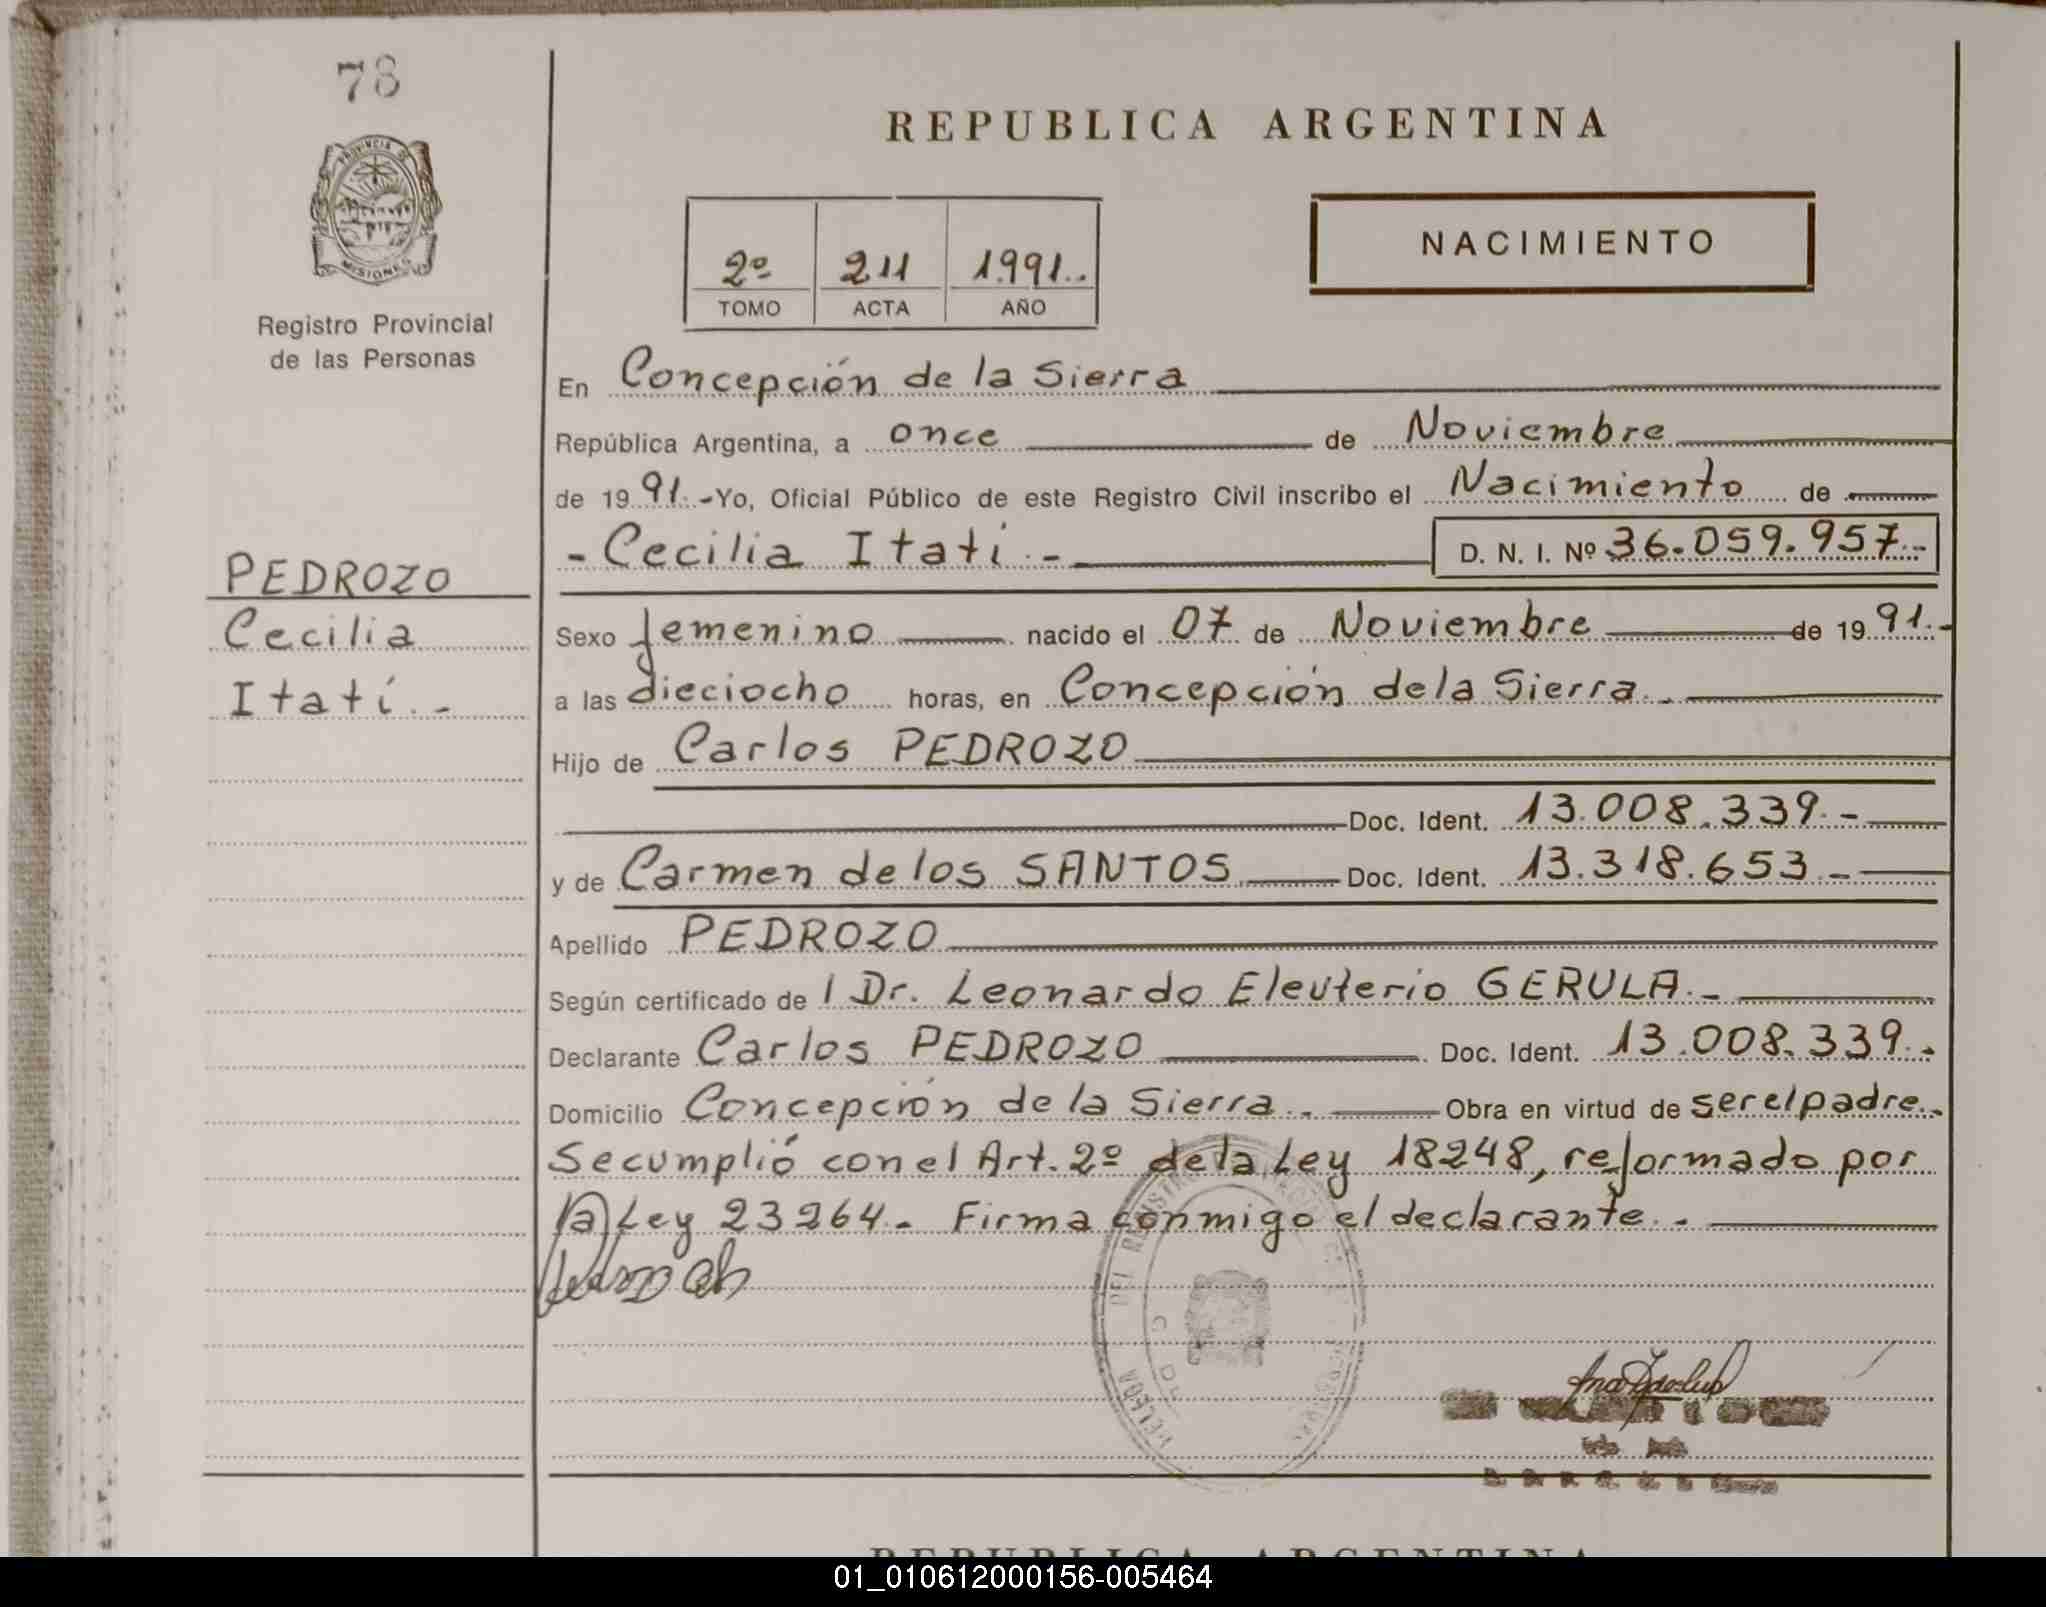 78
REPUBLICA ARGENTINA
PROVINCIA DE
MISIONES
Registro Provincial
de las Personas
2º 211 1.991..
TOMO ACTA AÑO
NACIMIENTO
En Concepción de la Sierra
República Argentina, a once de Noviembre
de 1991.-Yo, Oficial Público de este Registro Civil inscribo el Nacimiento de
- Cecilia Itatí.- D. N. I. Nº 36.059.957.-
PEDROZO
Cecilia
Itatí.-
Sexo femenino nacido el 07 de Noviembre de 1991.-
a las dieciocho horas, en Concepción de la Sierra.-
Hijo de Carlos PEDROZO
Doc. Ident. 13.008.339.-
y de Carmen de los SANTOS Doc. Ident. 13.318.653.-
Apellido PEDROZO
Según certificado de l Dr. Leonardo Eleuterio GERULA.-
Declarante Carlos PEDROZO Doc. Ident. 13.008.339.-
Domicilio Concepción de la Sierra.- Obra en virtud de ser el padre.-
Se cumplió con el Art. 2º de la Ley 18248, reformado por
la Ley 23264.- Firma conmigo el declarante.-
DEL
REPUBLICA ARGENTINA
01_010612000156-005464